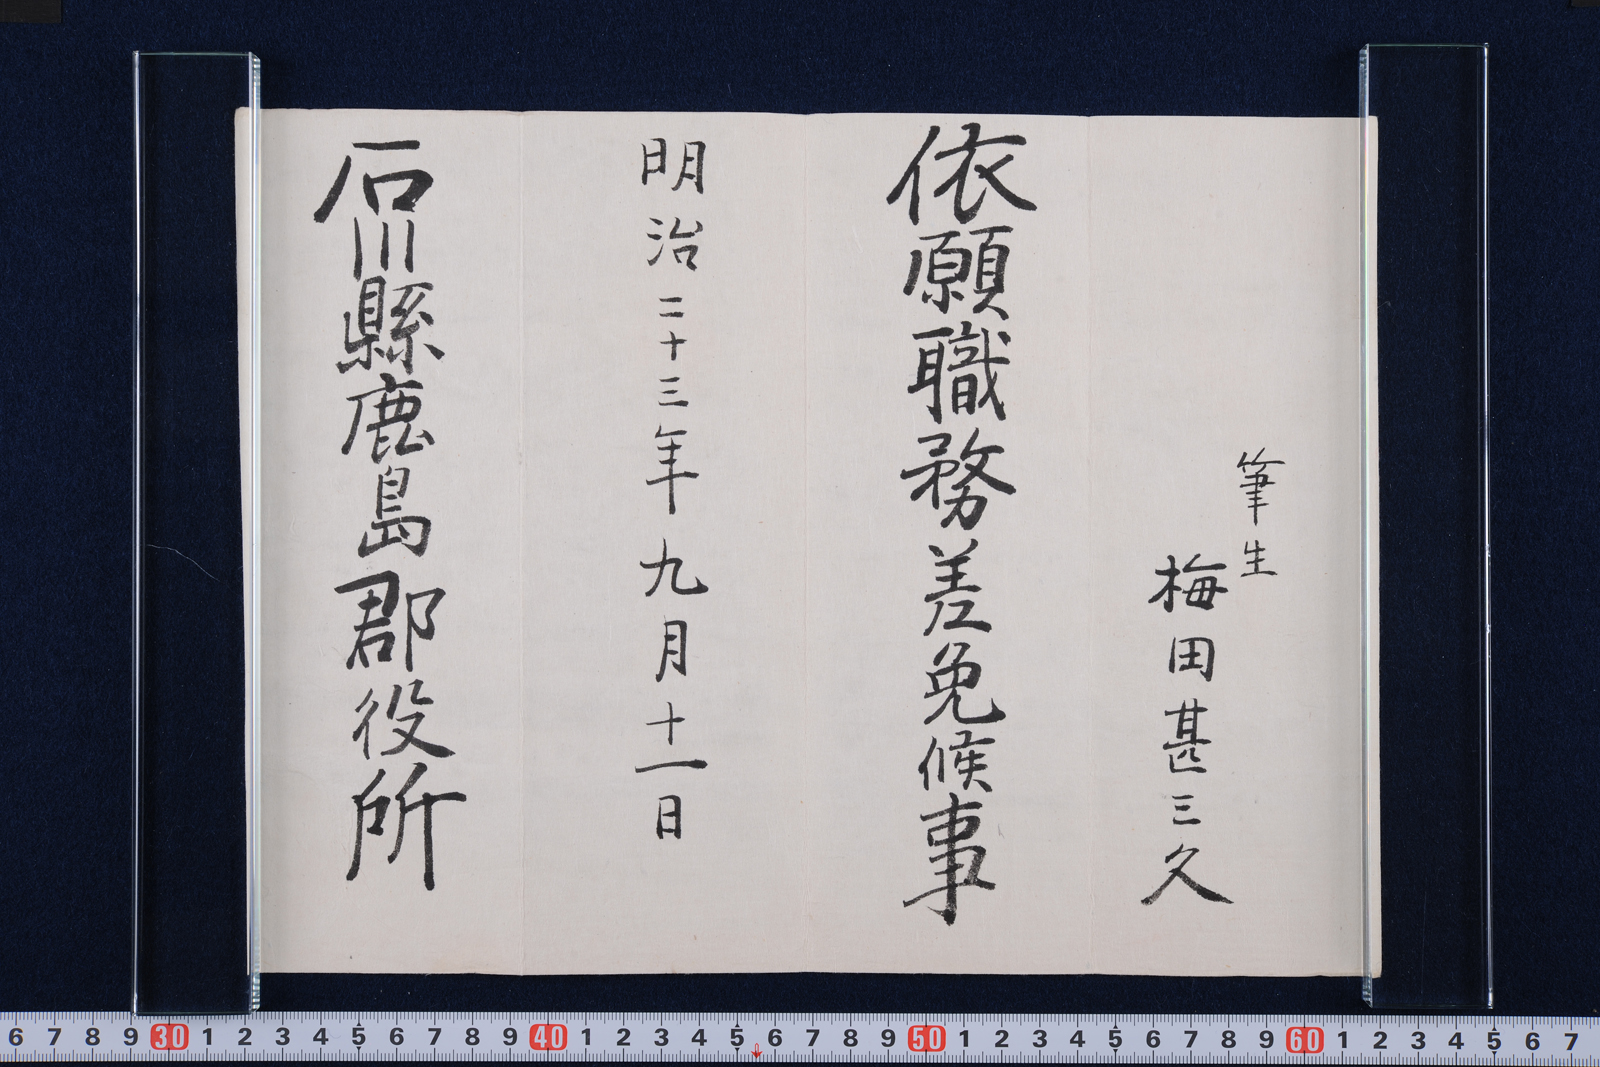 筆生
梅田甚三久
依願職務差免候事
明治二十三年九月十一日
石川縣鹿島郡役所
6 7 8 9 30 1 2 3 4 5 6 7 8 9 40 1 2 3 4 5 6 7 8 9 50 1 2 3 4 5 6 7 8 9 60 1 2 3 4 5 6 7